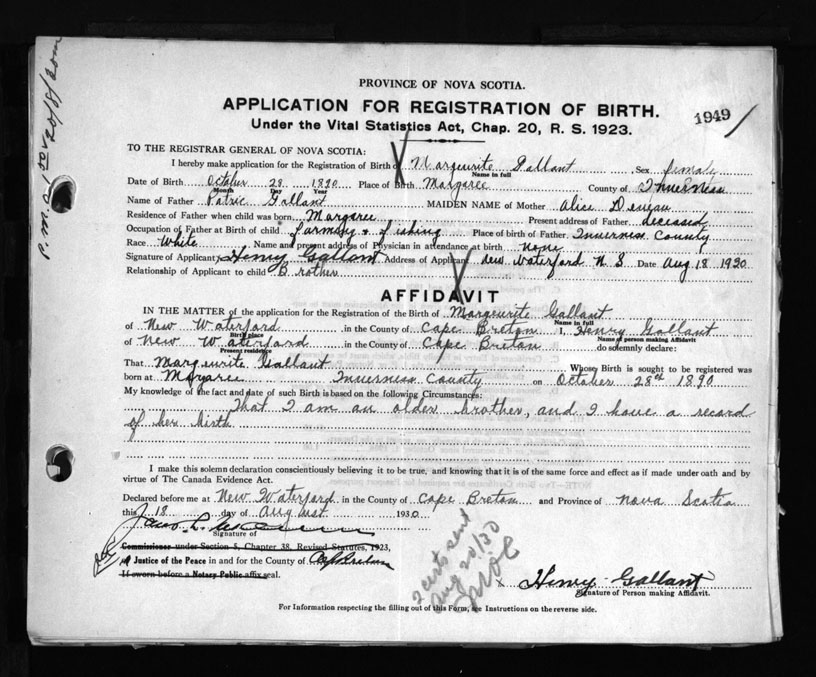 PROVINCE OF NOVA SCOTIA.
APPLICATION FOR REGISTRATION OF BIRTH.
1949
Under the Vital Statistics Act, Chap. 20, R. S. 1923.
TO THE REGISTRAR GENERAL OF NOVA SCOTIA:
I hereby make application for the Registration of Birth of Marguerite Gallant Sex female
Name in full
Date of Birth October 28 1890 Place of Birth Margaree County of Inverness
Month Day Year
Name of Father Patric Gallant MAIDEN NAME of Mother Alice Deveau
Residence of Father when child was born Margaree Present address of Father deceased
Occupation of Father at Birth of child farming + fishing Place of birth of Father Inverness County
Race White Name and present address of Physician in attendance at birth none
Signature of Applicant Henry Gallant Address of Applicant New Waterford N S Date Aug 18 1930
Relationship of Applicant to child Brother
AFFIDAVIT
IN THE MATTER of the application for the Registration of the Birth of Marguerite Gallant
Name in full
of New Waterford in the County of Cape Breton I, Henry Gallant
Birth place Name of person making Affidavit
of New Waterford in the County of Cape Breton do solemnly declare:
Present residence
That Marguerite Gallant Whose Birth is sought to be registered was
born at Margaree Inverness County on October 28th 1890
My knowledge of the fact and date of such Birth is based on the following Circumstances:
That I am an older brother, and I have a record
of her birth
I make this solemn declaration conscientiously believing it to be true, and knowing that it is of the same force and effect as if made under oath and by
virtue of The Canada Evidence Act.
Declared before me at New Waterford in the County of Cape Breton and Province of Nova Scotia
this 18 day of August 1930
Signature of
Commissioner under Section 5, Chapter 38, Revised Statutes, 1923,
Justice of the Peace in and for the County of Cape Breton
If sworn before a Notary Public affix seal.
2 certs sent
Aug 20/30
x Henry Gallant
Signature of Person making Affidavit.
For Information respecting the filling out of this Form, see Instructions on the reverse side.